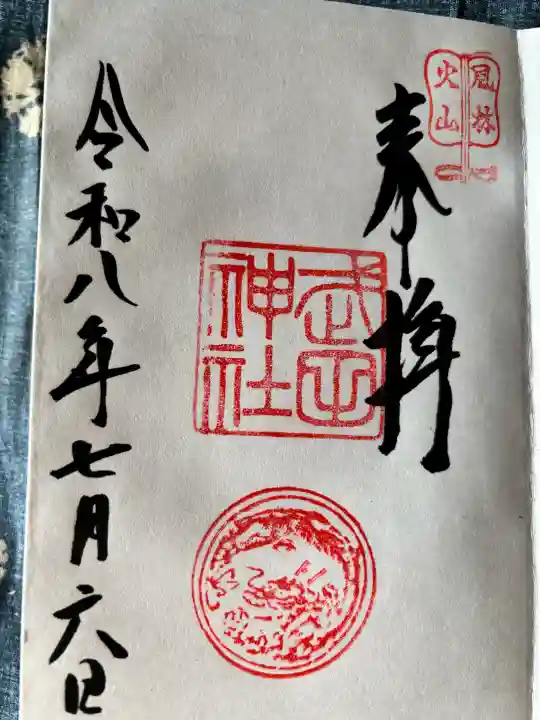 風林
火山
奉拝
武田
神社
令和八年七月六日